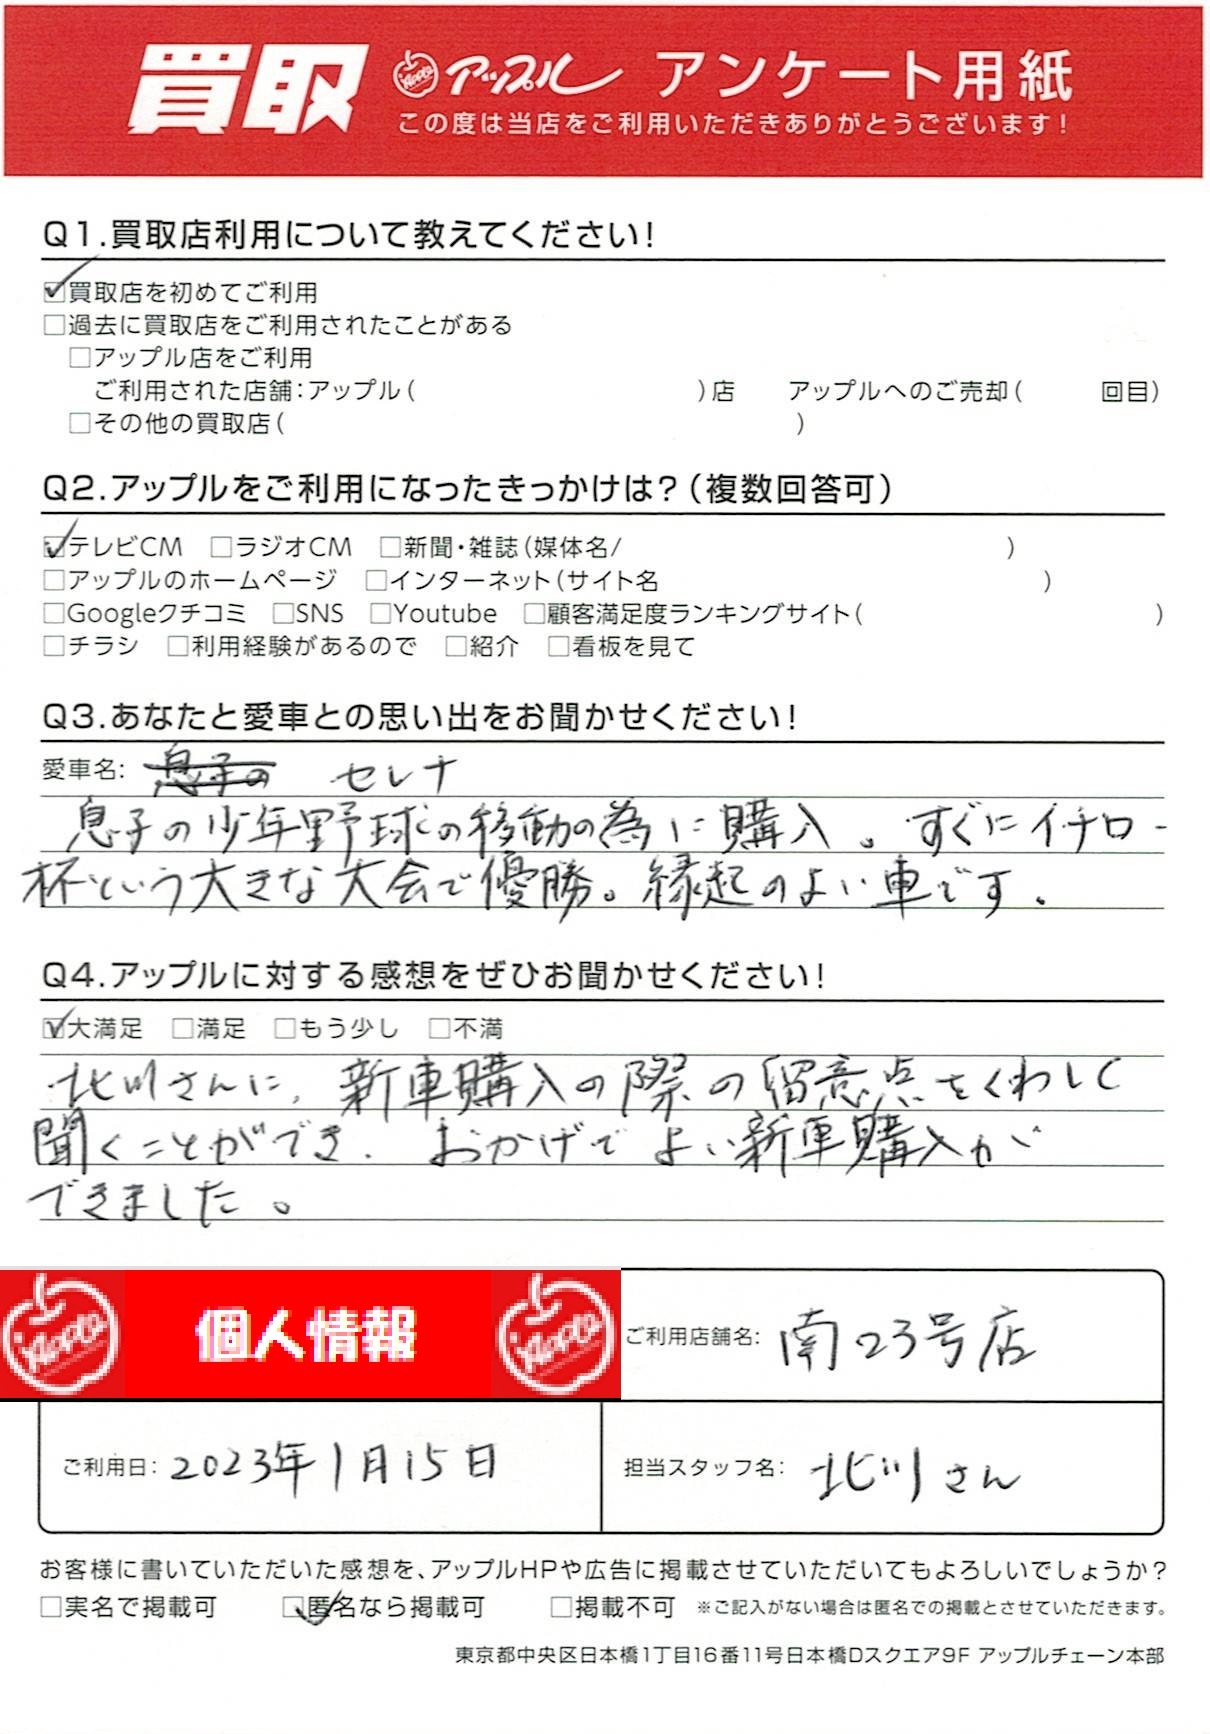 買取 Apple アップル アンケート用紙
この度は当店をご利用いただきありがとうございます!
Q1.買取店利用について教えてください!
☑買取店を初めてご利用
□過去に買取店をご利用されたことがある
□アップル店をご利用
ご利用された店舗:アップル( )店 アップルへのご売却( 回目)
□その他の買取店( )
Q2.アップルをご利用になったきっかけは?(複数回答可)
☑テレビCM □ラジオCM □新聞・雑誌(媒体名/ )
□アップルのホームページ □インターネット(サイト名 )
□Googleクチコミ □SNS □Youtube □顧客満足度ランキングサイト( )
□チラシ □利用経験があるので □紹介 □看板を見て
Q3.あなたと愛車との思い出をお聞かせください!
愛車名: 息子の セレナ
息子の少年野球の移動の為に購入。すぐにイチロー
杯という大きな大会で優勝。縁起のよい車です。
Q4.アップルに対する感想をぜひお聞かせください!
☑大満足 □満足 □もう少し □不満
北川さんに、新車購入の際の留意点をくわしく
聞くことができ、おかげでよい新車購入が
できました。
Apple 個人情報 Apple ご利用店舗名: 南23号店
ご利用日: 2023年1月15日 担当スタッフ名: 北川さん
お客様に書いていただいた感想を、アップルHPや広告に掲載させていただいてもよろしいでしょうか?
□実名で掲載可 ☑匿名なら掲載可 □掲載不可 ※ご記入がない場合は匿名での掲載とさせていただきます。
東京都中央区日本橋1丁目16番11号日本橋Dスクエア9F アップルチェーン本部